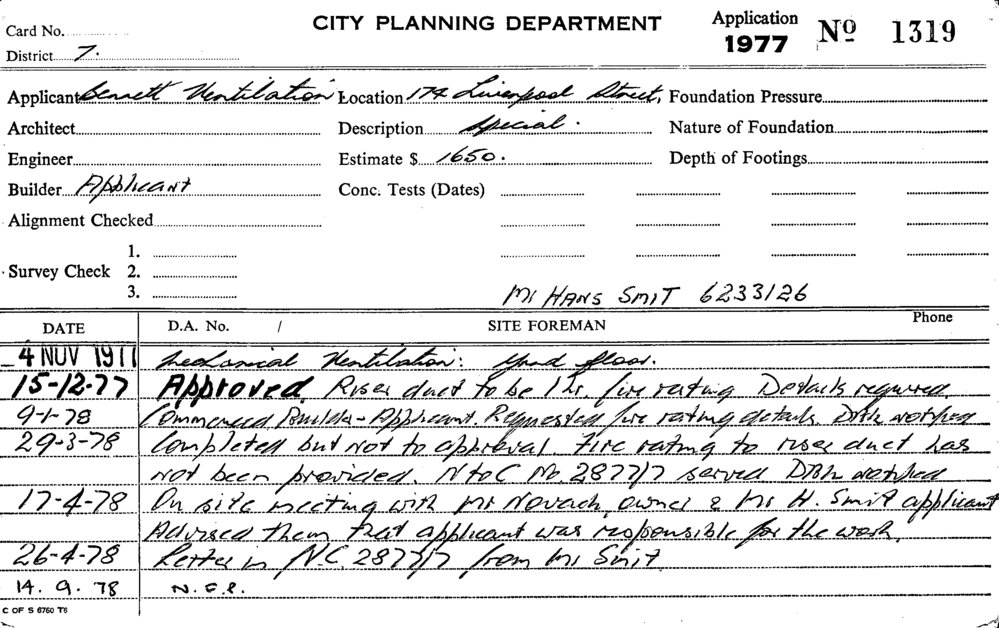 Card No.
CITY PLANNING DEPARTMENT
Application 1977 No 1319
District 7.
Applicant Bennett Ventilation Location 174 Liverpool Street, Foundation Pressure
Architect Description Special. Nature of Foundation
Engineer Estimate $ 1650. Depth of Footings
Builder Applicant Conc. Tests (Dates)
Alignment Checked
1.
Survey Check 2.
3.
Mr HANS SMIT 6233126
DATE D.A. No. / SITE FOREMAN Phone
4 NOV 1977 Mechanical Ventilation: floor.
15-12-77 Approved. Riser duct to be 1 hr. fire rating Details required
9-1-78 Commenced Builder - Applicant. Requested fire rating details. notified
29-3-78 Completed but not to approval. Fire rating to riser duct has
not been provided. N to C No. 2877/7 served notified
17-4-78 On site meeting with Mr owner & Mr H. Smit applicant
Advised them that applicant was responsible for the work.
26-4-78 Letter in N.C. 2877/7 from Mr Smit
14. 9. 78
C OF S 6760 T6